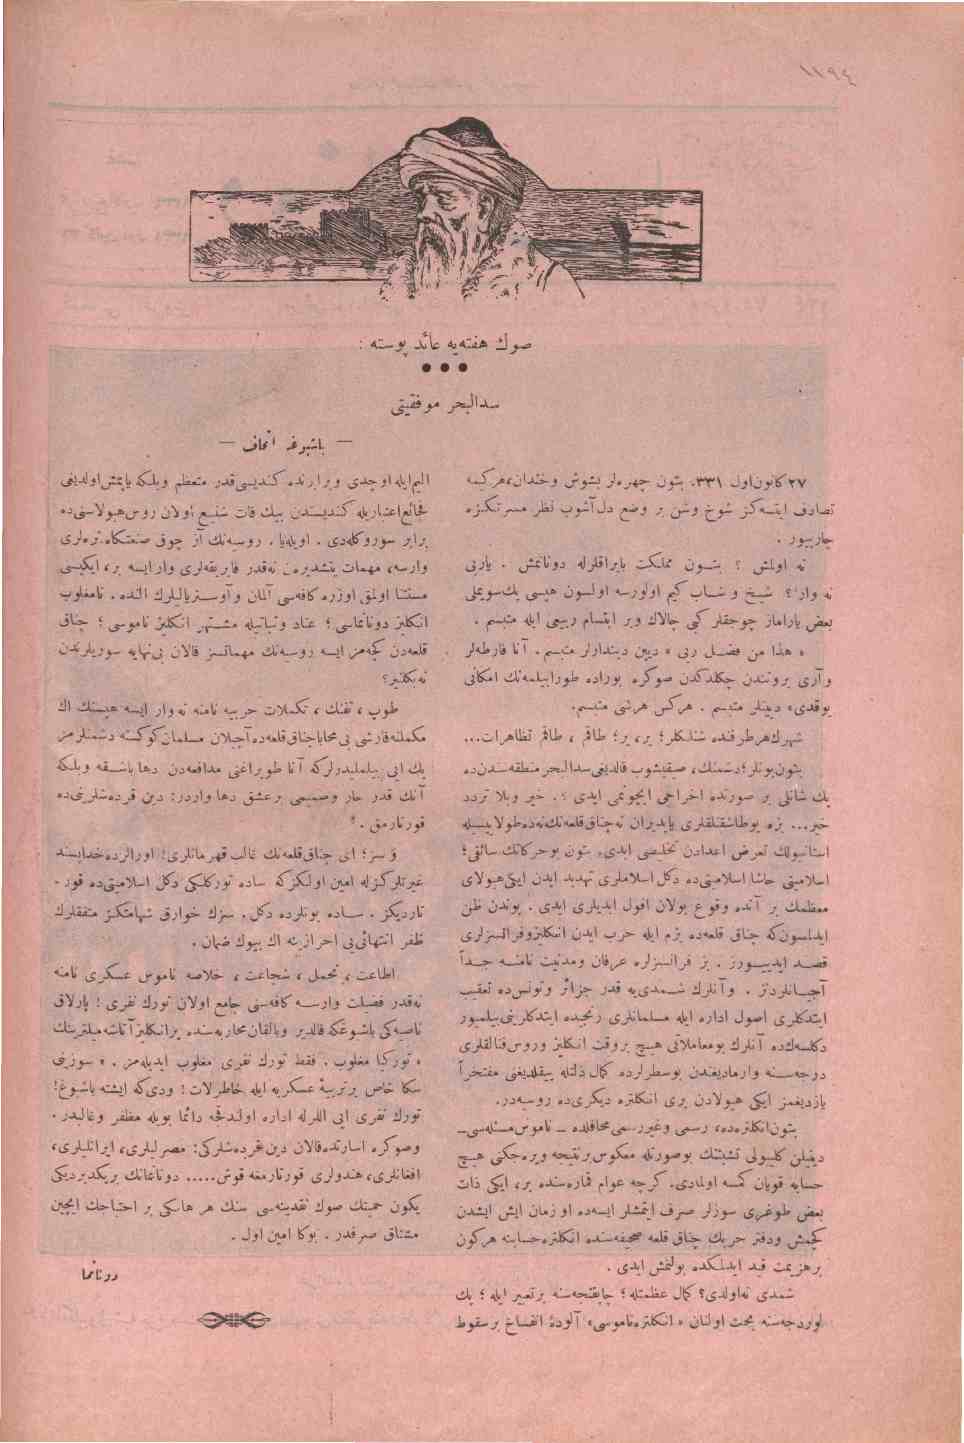 ١١٩٤
صوك هفته‌يه عائد پوسته :
سدالبحر موفقيتى
— باشبوغه اتحاف —
٢٧ كانون‌اول ٣٣١، بتون چهره‌لر بشوش وخندان، هركيمه
تصادف ايتسه‌كز شوخ وشن بر وضع دل‌آشوب نظر مسرتكزه
چارپيور .
نه اولمش ؟ بتون مملكت بايراقلرله دوناتمش . ياربى
نه وار ؟ شيخ و شاب كيم اولورسه اولسون هپسى يك‌سويملى
بعض ياراماز چوجقلر كبى چالاك وبر ابتسام ربيعى ايله متبسم .
« هذا من فضل ربى » ديين ديندارلر متبسم . آنا فارطه‌لر
وآرى بروننندن چكلدكدن صوكره بوراده طورابيلمه‌نك امكانى
يوقدى» ديينلر متبسم . هركس هرشى متبسم.
شهرك‌هرطرفنده شنلكلر؛ بر، بر؛ طاقم ، طاقم تظاهرات...
بتون‌بونلر؛دشمنك، صيقيشوب قالديغى‌سدالبحر منطقه‌سندن‌ده
پك شانلى بر صورتده اخراجى ايچونمى ايدى ؟. خير وبلا تردد
خير... بزه بوطاشقنلقلرى ياپديران نه‌چناق‌قلعه‌نك‌نه‌ده‌طولاييسيله
استانبولك تعرض اعدادن تخليصى ايدى. بتون بوحركاتك سائقى؛
اسلاميتى حاشا اسلاميتى‌ده دكل اسلاملرى تهديد ايدن ايكى‌هيولاى
معظمك بر آنده وقوع بولان افول ابديلرى ايدى . بوندن ظن
ايدلمسون‌كه چناق قلعه‌ده بزم ايله حرب ايدن انكليزوفرانسزلرى
قصد ايدييورز . بز فرانسزلره عرفان ومدنيت نامنه جداً
آجيانلردنز . وآنلرك شمدى‌يه قدر جزائر وتونس‌ده تعقيب
ايتدكلرى اصول اداره ايله مسلمانلرى رنجيده ايتدكلرينى‌بيلميور
دكلسه‌ك‌ده آنلرك بومعاملاتى هيچ بروقت انكليز وروس‌فنالقلرى
درجه‌سنه وارماديغندن بوسطرلرده كمال ذلتله ييقلديغنى مفتخراً
يازديغمز ايكى هيولادن برى انكلتره ديكرى‌ده روسيه‌در.
بتون‌انكلتره‌ده، رسمى وغيررسمى‌محافلده ــ ناموس‌مسئله‌سى ــ
دينيلن كليبولى تشبثنك بوصورتله معكوس برنتيجه ويره‌جكنى هيچ
حسابه قويان كمسه اولمادى. كرچه عوام قماره‌سنده بر، ايكى ذات
بعض طوغرى سوزلر صرف ايتمشلر ايسه‌ده او زمان ايش ايشدن
كچمش ودفتر حربك چناق قلعه صحيفه‌سنده انكلتره‌حسابنه هركون
برهزيمت قيد ايدلمكده بولنمش ايدى .
شمدى نه‌اولدى؟ كمال عظمتله؛ چاپقنجه‌سنه برتعبير ايله؛ پك
لوردجه‌سنه بحث اولنان « انكلتره‌ناموسى» آلودهٔ انفساخ برسقوط
اليم‌ايله اوچدى وبرابرنده كنديسى‌قدر متعظم وبلكه ياپمش‌اولديغى
فجائع‌اعتباريله كنديسندن بيك قات شنيع اولان روس‌هيولاسنى‌ده
برابر سوروكله‌دى . اويله‌يا ، روسيه‌نك آز چوق صنعتكاه نره‌لرى
وارسه، مهمات يتشديره‌ن نه‌قدر فابريقه‌لرى وارايسه بر، ايكيسى
مستثنا اولمق اوزره كافه‌سى آلمان وآوستريالبلرك النده . نامغلوب
انكليز دونانماسى؛ عناد وثباتيله مشتهر انكليز ناموسى؛ چناق
قلعه‌دن كچه‌مز ايسه روسيه‌نك مهماتسز قالان بى‌نهايه سوريلرندن
نه‌بكلنير؟
طوپ ، تفنك ، تكملات حربيه نامنه نه‌وار ايسه هپسنك اك
مكملنه‌قارشى بى‌محاباچناق‌قلعه‌ده‌آچيلان مسلمان‌كوكسنه دشمنلرمز
پك ايى بيلمليدرلركه آنا طوپراغنى مدافعه‌دن دها‌باشقه وبلكه
آنك قدر حار وصميمى برعشق دها واردر: دين قردشلرينى‌ده
قورتارمق .
سز؛ اى چناق‌قلعه‌نك غالب قهرمانلرى! اورالرده‌خداپسند
غيرتلركزله امين اولكزكه ساده توركلكى دكل اسلاميتى‌ده قور-
تارديكز . ساده بونلرده دكل. سزك خوارق شهامتكز متفقلرك
ظفر انتهائى‌يى احرازينه اك بيوك ضمان .
اطاعت ، تحمل ، شجاعت ، خلاصه ناموس عسكرى نامنه
نه‌قدر فضيلت وارسه كافه‌سنى جامع اولان تورك نفرى ! پارلاق
ناصيه‌كى باشبوغكه قالدير وبالقان‌محاربه‌سنده برانكليز آتاشه‌ميليترينك
« توركيا مغلوب . فقط تورك نفرى مغلوب ايديله‌مز . » سوزينى
سكا خاص برتربيهٔ عسكريه ايله خاطرلات؛ ودى‌كه ايشته باشبوغ!
تورك نفرى ايى اللرله اداره اولندقجه دائما بويله مظفر وغالبدر .
وصوكره اسارتده‌قالان دين‌قرده‌شلركى: مصرليلرى، ايرانليلرى،
افغانلرى، هندولرى قورتارمغه قوش.....  دونانمانك بريكديرديكى
يكون حميتك صوك نقدينه‌سى سنك هر هانكى بر احتياجك ايچين
مشتاق صرفدر . بوكا امين اول .
دونانما